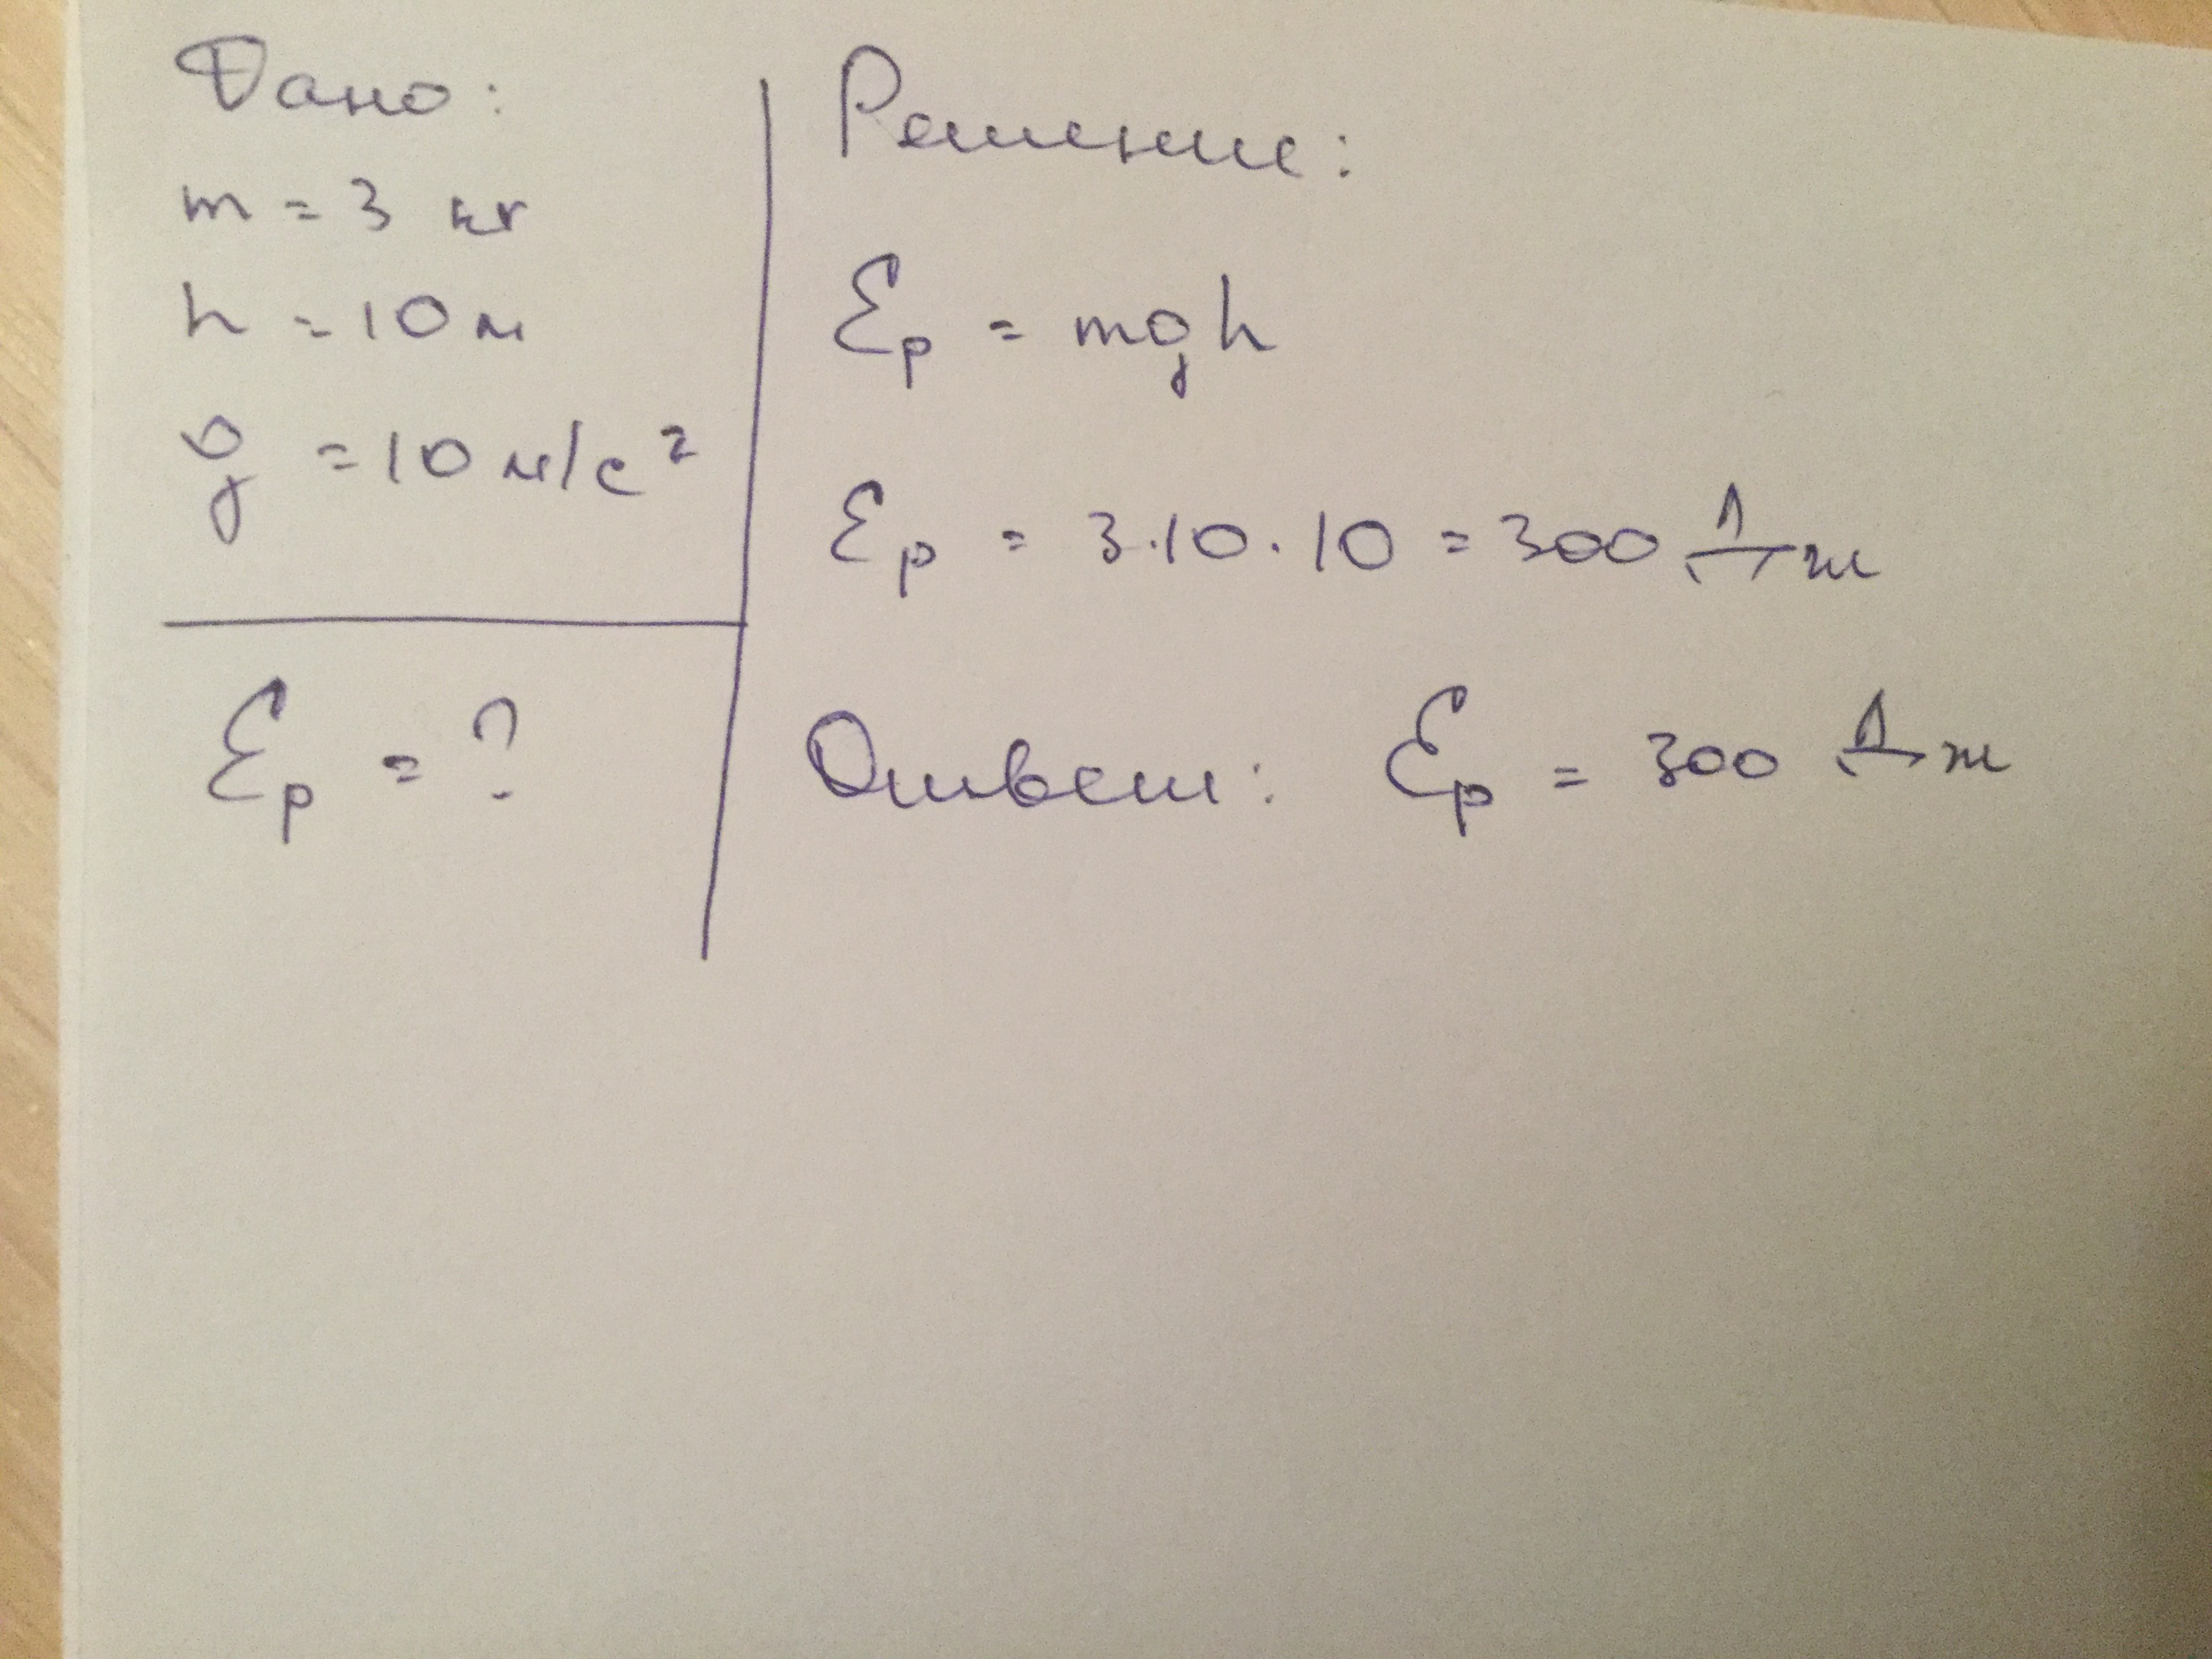 Дано:
m = 3 кг
h = 10 м
g = 10 м/с²
Eₚ = ?
Решение:
Eₚ = mgh
Eₚ = 3·10·10 = 300 Дж
Ответ: Eₚ = 300 Дж